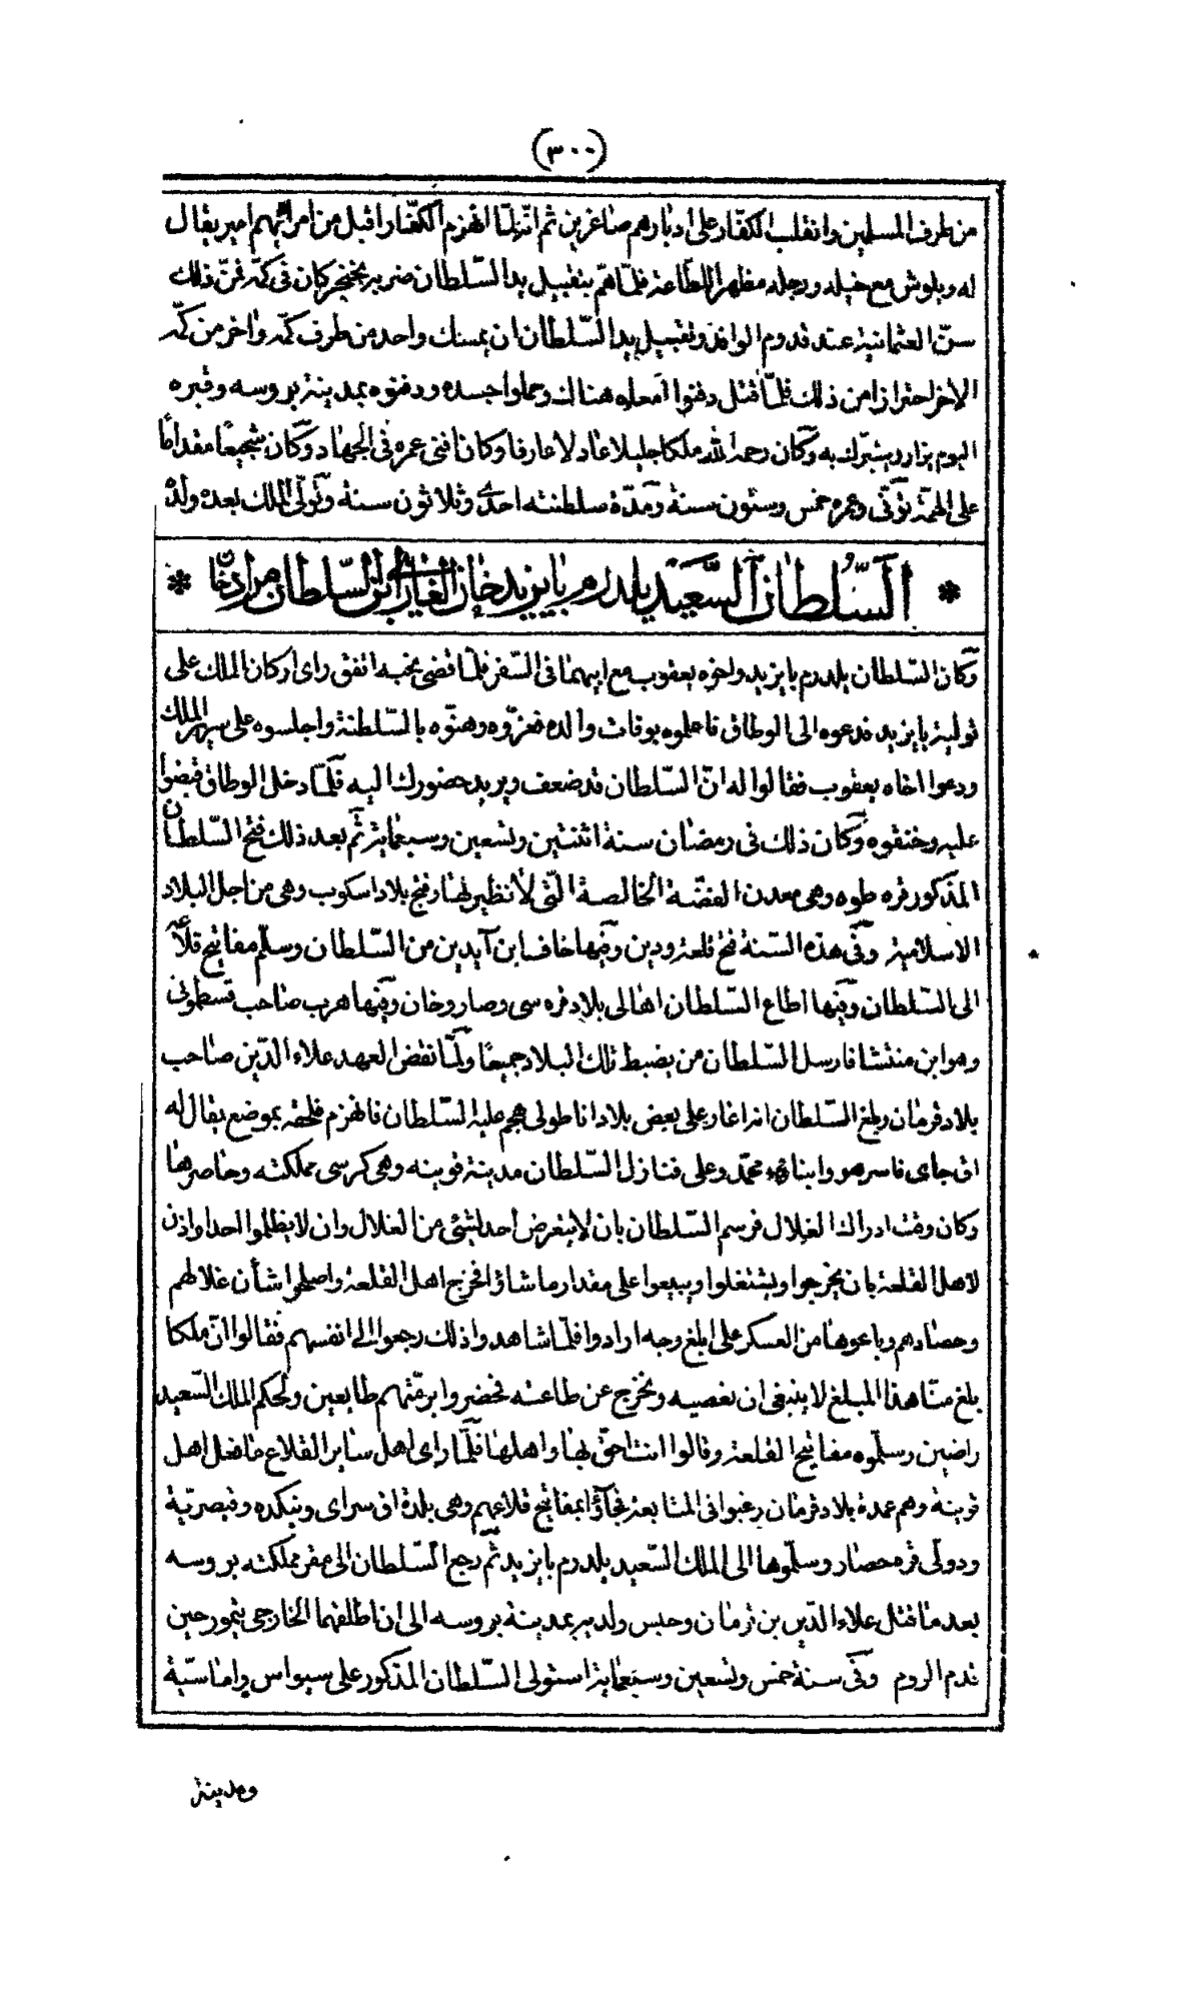 (٣٠٠)
من طرف المسلمين وانقلب الكفّار على ادبارهم صاغرين ثم انّه لمّا انهزم الكفّار اقبل من امرائهم امير يقال
له ويلوش مع خيله ورجله مظهرا للطّاعة فلمّا همّ بتقبيل يد السّلطان ضربه بخنجر كان فى كمّه فمن ذلك
سنّ العثمانية عند قدوم الوافد وتقبيل يد السّلطان ان يمسك واحد من طرف كمّه واخر من كمّه
الاخر احترازا من ذلك فلمّا قتل دفنوا امعاه هناك وحملوا جسده ودفنوه بمدينة بروسه وقبره
اليوم يزار ويتبرّك به وكان رحمه الله ملكا جليلا عادلا عارفا وكان افنى عمره فى الجهاد وكان شجيعا مقداما
على الهمّة توفّى وعمره خمس وستون سنة ومدّة سلطنته احدى وثلاثون سنة وتولّى الملك بعده ولده
* السّلطان السّعيد يلدرم بايزيد خان الغازى ابن السّلطان مراد خان *
وكان السّلطان يلدرم بايزيد واخوه يعقوب مع ابيهما فى السّفر فلمّا قضى نحبه اتفق راى اركان الملك على
تولية بايزيد فدعوه الى الوطاق فاعلموه بوفات والده فعزّوه وهنّوه بالسّلطنة واجلسوه على سرير الملك
ودعوا اخاه يعقوب فقالوا له انّ السّلطان قد ضعف ويريد حضورك اليه فلمّا دخل الوطاق قبضوا
عليه وخنقوه وكان ذلك فى رمضان سنة اثنتين وتسعين وسبعماية ثم بعد ذلك فتح السّلطان
المذكور قره طوه وهى معدن الفضّة الخالصة الّتى لا نظير لها وفتح بلاد اسكوب وهى من اجل البلاد
الاسلامية وفى هذه السّنة فتح قلعة ودين وفيها خاف ابن آيدين من السّلطان وسلّم مفاتيح قلاعه
الى السّلطان وفيها اطاع السّلطان اهالى بلاد قره سى وصاروخان وفيها هرب صاحب قسطمونى
وهو ابن منتشا فارسل السّلطان من يضبط تلك البلاد جميعا ولمّا نقض العهد علاء الدّين صاحب
بلاد قرمان وبلغ السّلطان انه اغار على بعض بلاد اناطولى هجم عليه السّلطان فانهزم فلحقه بموضع يقال له
اق جاى فاسر هو وابناه محمّد وعلى فنازل السّلطان مدينة قونيه وهى كرسى مملكته وحاصرها
وكان وقت ادراك الغلال فرسم السّلطان بان لا يتعرض احد لشئ من الغلال وان لا يظلموا احدا واذن
لاهل القلعة بان يخرجوا ويشتغلوا ويبيعوا على مقدار ما شاؤا فخرج اهل القلعة واصلحوا شأن غلاتهم
وحصادهم وباعوها من العسكر على ابلغ وجه ارادوا فلمّا شاهدوا ذلك رجعوا الى انفسهم فقالوا انّ ملكا
بلغ منّا هذا المبلغ لا ينبغى ان نعصيه ونخرج عن طاعته فحضروا برمّتهم طايعين ولحكم الملك السّعيد
راضين وسلّموه مفاتيح القلعة وقالوا انت احقّ بها واهلها فلمّا راى اهل ساير القلاع ما فعل اهل
قونية وهم عمدة بلاد قرمان رغبوا فى المتابعة فجاؤا بمفاتيح قلاعهم وهى بلدة اق سراى ونيكده وقيصريّة
ودولى قره حصار وسلّموها الى الملك السّعيد يلدرم بايزيد ثمّ رجع السّلطان الى مقر مملكته بروسه
بعد ما قتل علاء الدّين بن قرمان وحبس ولديه بمدينة بروسه الى ان اطلقهما الخارجى تيمور حين
قدم الروم وفى سنة خمس وتسعين وسبعماية استولى السّلطان المذكور على سيواس واماسيّة
ومدينة